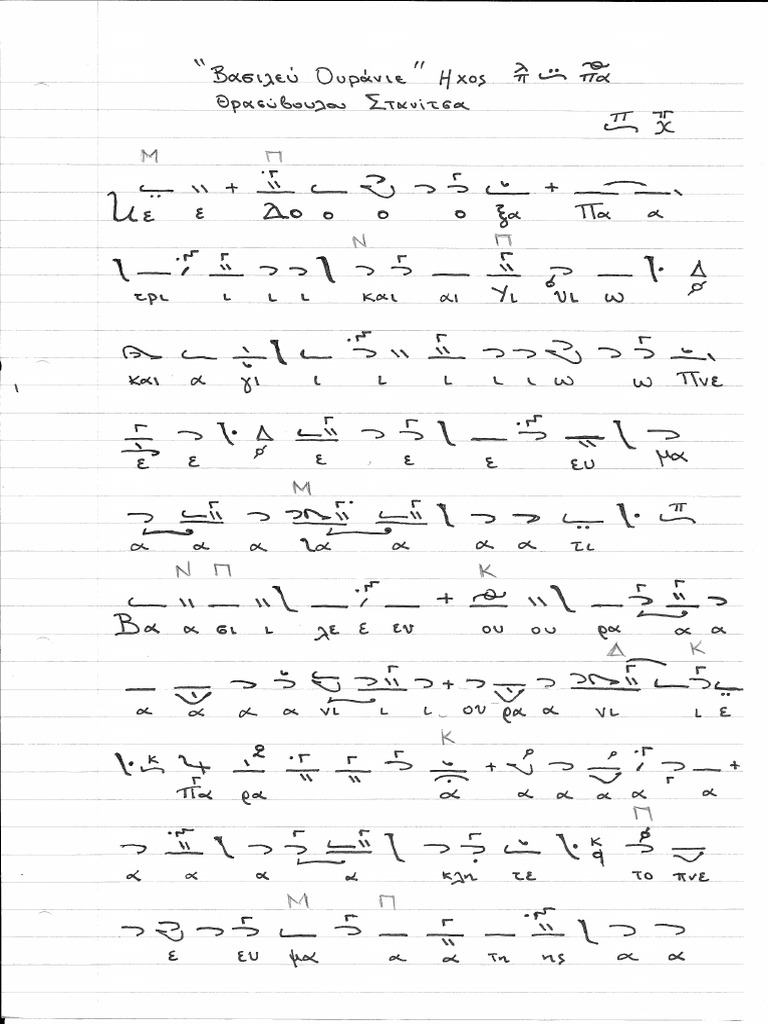 "Βασιλεύ Ουράνιε" Ηχος λ π Πα
Θρασύβουλου Στανίτσα
Μ Π
ε ε Δο ο ο ο ξα Πα α
Ν Π
τρι ι ι ι και αι Υι υι ω Δ
και α γι ι ι ι ι ι ω ω Πνε
ε ε Δ ε ε ε ευ μα
Μ
α α α α α α α τι
Ν Π Κ
Βα α σι ι λε ε ευ ου ου ρα α α
Δ Κ
α α α α νι ι ι ου ρα α νι ι ε
Κ
κ Πα ρα α α α α α α
Π
α α α α κλη τε κ το πνε
Μ Π
ε ευ μα α α τη ης α α